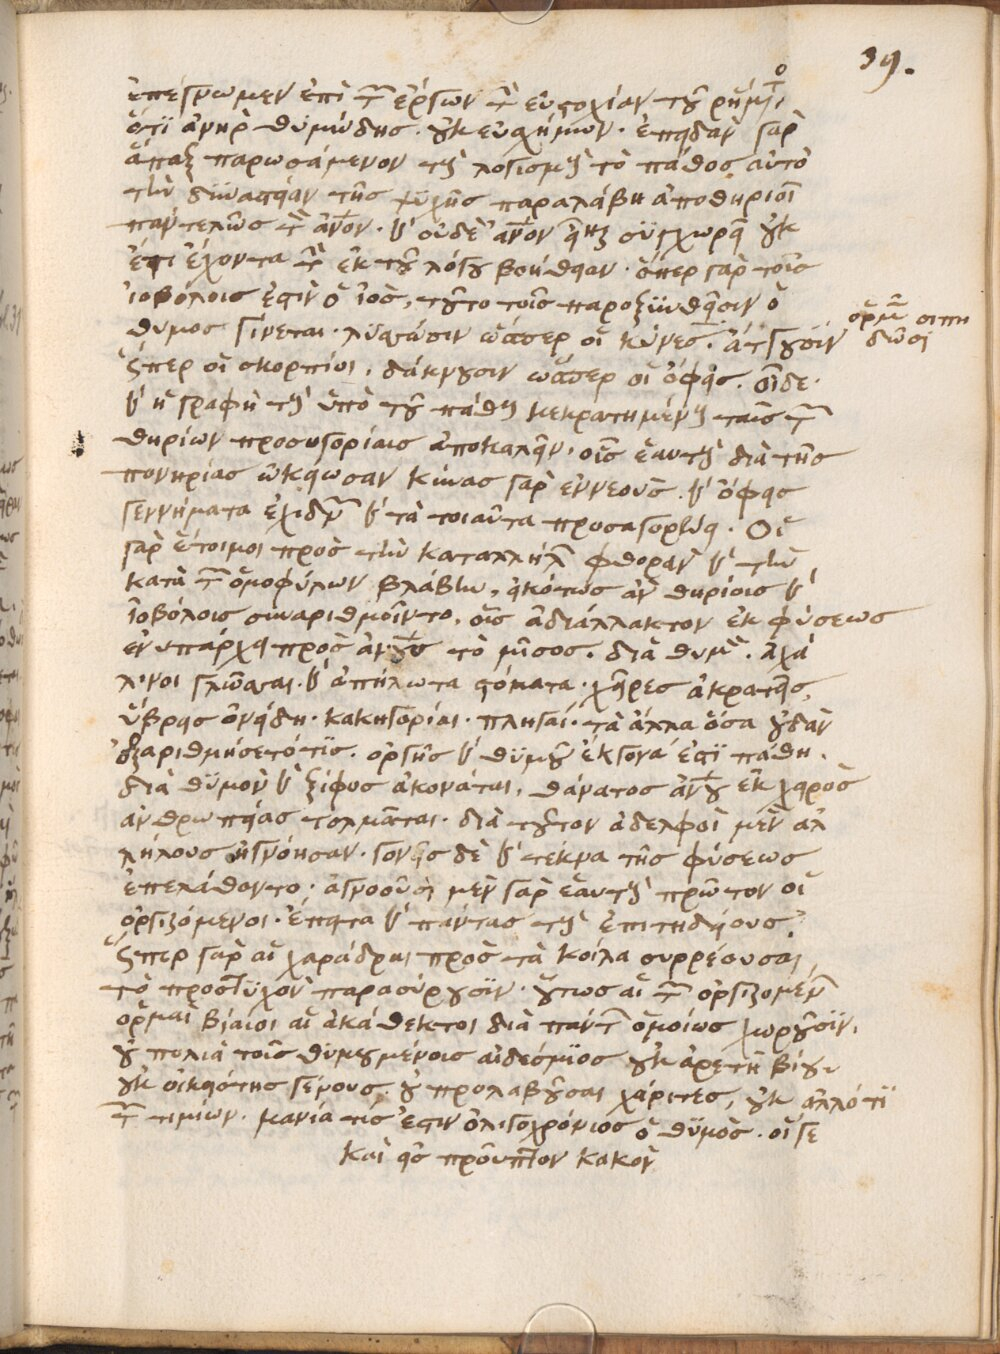 39.
ἐπέγνωμεν ἐπὶ τῶν ἔργων τὴν εὐστοχίαν τοῦ ῥήματος
ὅτι ἀνὴρ θυμώδης. οὐκ εὐσχήμων. ἐπειδὰν γὰρ
ἅπαξ παρωσάμενον τοὺς λογισμοὺς τὸ πάθος αὐτὸ
τὴν δυναστείαν τῆς ψυχῆς παραλάβη ἀποθηριοῖ
παντελῶς τὸν ἄνον. ϗ οὐδὲ ἄνον εἶναι συγχωρεῖ οὐκ
ἔτι ἔχοντα τὴν ἐκ τοῦ λόγου βοήθειαν. ὅπερ γὰρ τοῖς
ἰοβόλοις ἐστὶν ὁ ἰὸς, τοῦτο τοῖς παροξυνθεῖσιν ὁ
θυμος γίνεται. λυσσῶσιν ὥσπερ οἱ κύνες. ἄττουσιν
ὥσπερ οἱ σκορπίοι. δάκνουσιν ὥσπερ οἱ ὄφεις. οἶδε.
ϗ ἡ γραφὴ τοὺς ὑπὸ τοῦ πάθους κεκρατημένους ταῖς τῶν
θηρίων προσηγορίαις ἀποκαλεῖν. οἷς ἑαυτοὺς διὰ τῆς
πονηρίας ὠκείωσαν κύνας γὰρ ἐννεοὺς. ϗ ὄφεις
γεννήματα ἐχιδνῶν ϗ τὰ τοιαῦτα προσαγορεύει. Οἱ
γὰρ ἕτοιμοι πρὸς τὴν καταλλήλων φθορὰν ϗ τὴν
κατὰ τῶν ὁμοφύλων βλάβην, εἰκότως ἂν θηρίοις ϗ
ἰοβόλοις συναριθμοῖντο. οἷς ἀδιάλλακτον ἐκ φύσεως
ἐνυπάρχει πρὸς ἀνους τὸ μῖσος. διὰ θυμὸν. ἀχά
λινοι γλῶσσαι. ϗ ἀπύλωτα στόματα. χεῖρες ἀκρατεῖς.
ὕβρεις ὀνείδη. κακηγορίαι. πληγαί. τὰ ἄλλα ὅσα οὐδ' ἂν
ἐξαριθμήσετό τις. ὀργῆς ϗ θυμοῦ ἔκγονα ἐστὶ πάθη.
διὰ θυμὸν ϗ ξίφος ἀκονᾶται. θάνατος ἀνου ἐκ χειρὸς
ἀνθρωπείας τολμᾶται. διὰ τοῦτον ἀδελφοὶ μὲν ἀλ
λήλους ἠγνόησαν. γονεῖς δὲ ϗ τέκνα τῆς φύσεως
ἐπελάθοντο. ἀγνοοῦσι μὲν γὰρ ἑαυτοὺς πρῶτον οἱ
ὀργιζόμενοι. ἔπειτα ϗ πάντας τοὺς ἐπιτηδείους.
ὥσπερ γὰρ αἱ χαράδραι πρὸς τὰ κοίλα συρρέουσαι
τὸ προστυχὸν παρασύρουσιν. οὕτως αἱ τῶν ὀργιζομένων
ὁρμαὶ βίαιοι αἱ ἀκάθεκτοι διὰ πάντων ὁμοίως χωροῦσιν.
οὐ πολιὰ τοῖς θυμουμένοις αἰδέσιμος οὐκ ἀρετὴ βίου
οὐκ οἰκειότης γένους οὐ προλαβοῦσαι χάριτες, οὐκ ἄλλό τι
τῶν τιμίων. μανία τίς ἐστιν ὀλιγοχρόνιος ὁ θυμὸς. οἵ γε
καὶ εἰς προὖπτον κακὸν